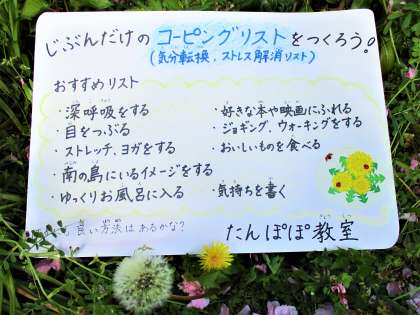 じぶんだけの コーピングリストをつくろう!
(気分転換、ストレス解消リスト)
おすすめリスト
・深呼吸をする
・目をつぶる
・ストレッチ、ヨガをする
・南の島にいるイメージをする
・ゆっくりお風呂に入る
・好きな本や映画にふれる
・ジョギング、ウォーキングをする
・おいしいものを食べる
・気持ちを書く
良い方法はあるかな?
たんぽぽ教室